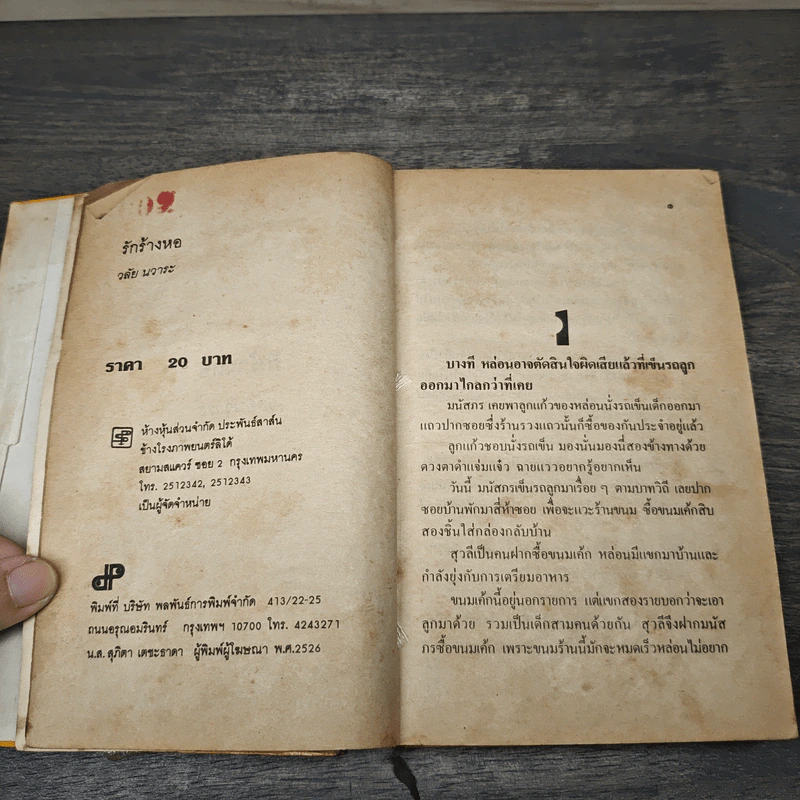 รักร้างหอ
วลัย นวาระ
ราคา 20 บาท
ห้างหุ้นส่วนจำกัด ประพันธ์สาส์น
ข้างโรงภาพยนตร์ลิโด้
สยามสแควร์ ซอย 2 กรุงเทพมหานคร
โทร. 2512342, 2512343
เป็นผู้จัดจำหน่าย
dP
พิมพ์ที่ บริษัท พลพันธ์การพิมพ์จำกัด 413/22-25
ถนนอรุณอมรินทร์ กรุงเทพฯ 10700 โทร. 4243271
น.ส. สุภิตา เตชะธาดา ผู้พิมพ์ผู้โฆษณา พ.ศ.2526
๑
บางที หล่อนอาจตัดสินใจผิดเสียแล้วที่เข็นรถลูก
ออกมาไกลกว่าที่เคย
มนัสภร เคยพาลูกแก้วของหล่อนนั่งรถเข็นเด็กออกมา
แถวปากซอยซึ่งร้านรวงแถวนั้นก็ซื้อของกันประจำอยู่แล้ว
ลูกแก้วชอบนั่งรถเข็น มองนั่นมองนี่สองข้างทางด้วย
ดวงตาดำแจ่มแจ๋ว ฉายแววอยากรู้อยากเห็น
วันนี้ มนัสภรเข็นรถลูกมาเรื่อย ๆ ตามบาทวิถี เลยปาก
ซอยบ้านพักมาสี่ห้าซอย เพื่อจะแวะร้านขนม ซื้อขนมเค้กสิบ
สองชิ้นใส่กล่องกลับบ้าน
สุวลีเป็นคนฝากซื้อขนมเค้ก หล่อนมีแขกมาบ้านและ
กำลังยุ่งกับการเตรียมอาหาร
ขนมเค้กนี้อยู่นอกรายการ แต่แขกสองรายบอกว่าจะเอา
ลูกมาด้วย รวมเป็นเด็กสามคนด้วยกัน สุวลีจึงฝากมนัส
ภรซื้อขนมเค้ก เพราะขนมร้านนี้มักจะหมดเร็วหล่อนไม่อยาก